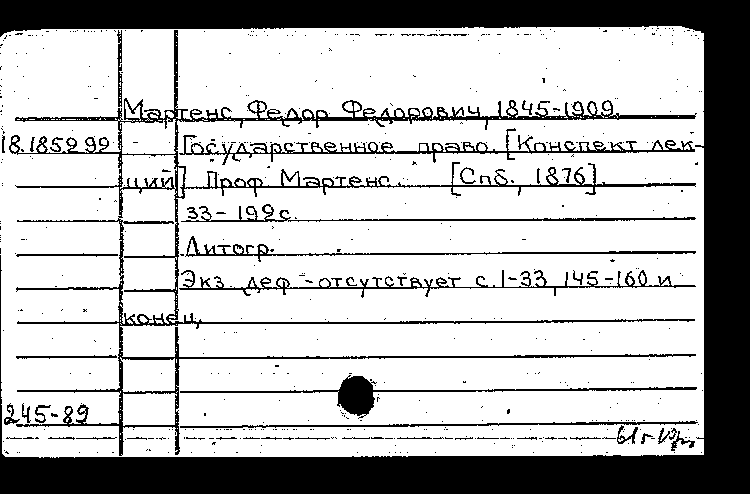 Мартенс, Федор Федорович, 1845-1909.
18.185.2.99 Государственное право. [Конспект лек-
ций] Проф Мартенс. [Спб., 1876].
33-192 с.
Литогр.
Экз. деф - отсутствует с. 1-33, 145-160 и
конец.
245-89